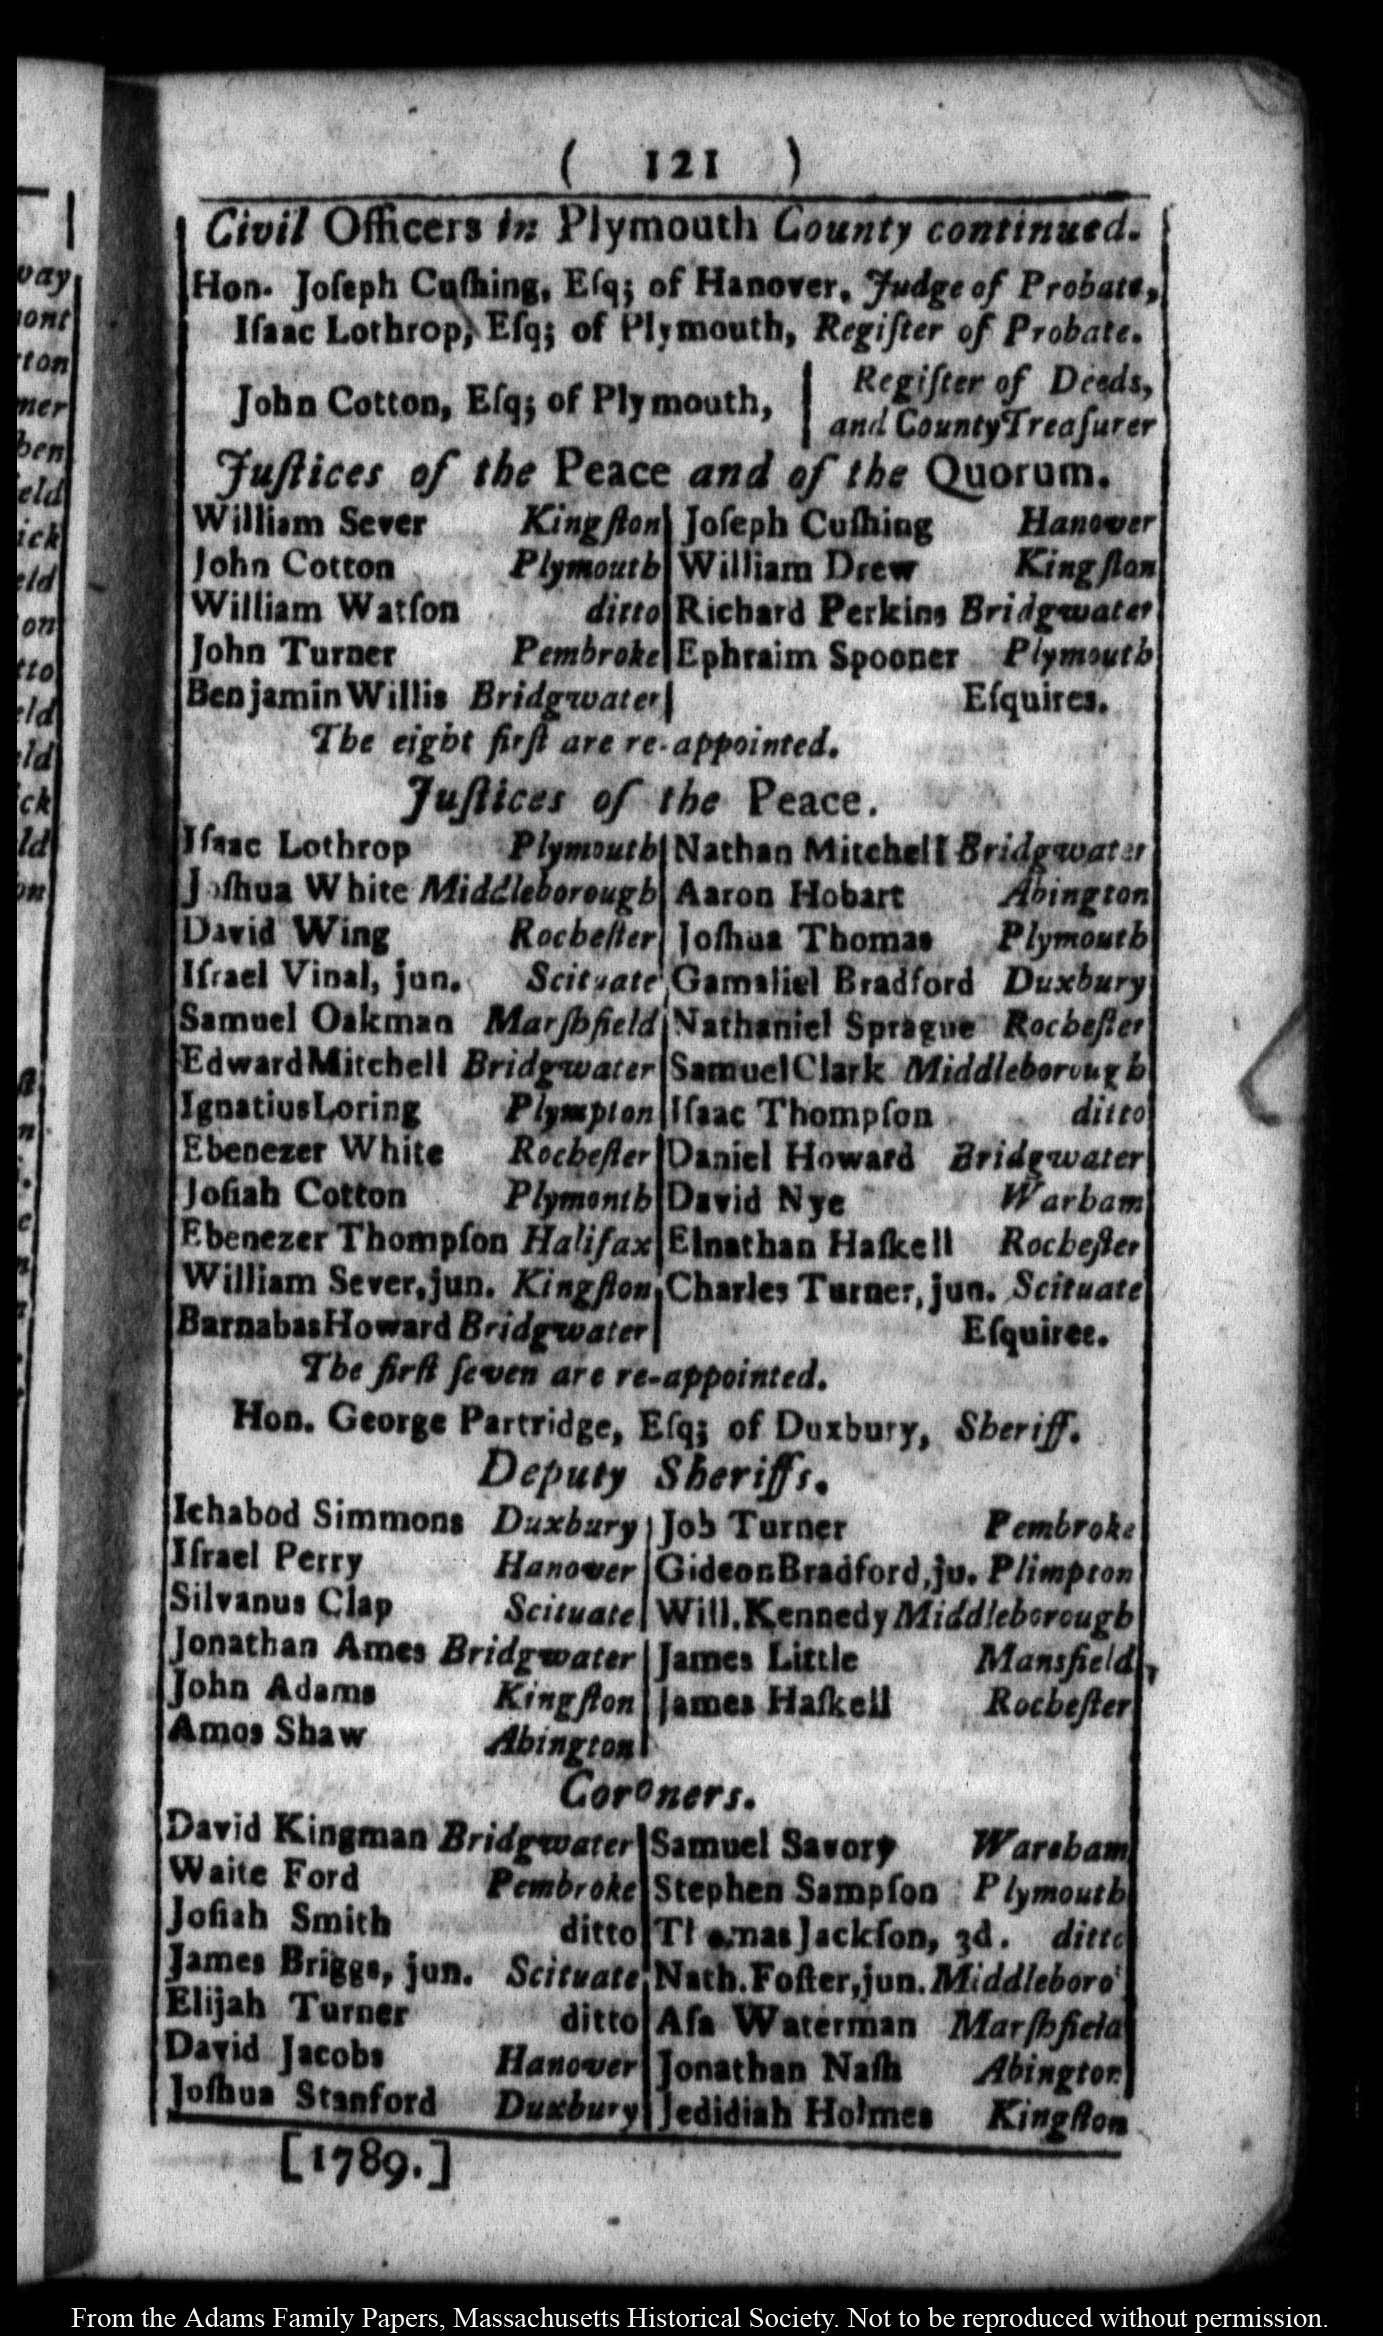 ( 121 )
Civil Officers in Plymouth County continued.
Hon. Joſeph Cuſhing, Eſq; of Hanover, Judge of Probate,
Iſaac Lothrop, Eſq; of Plymouth, Regiſter of Probate.
John Cotton, Eſq; of Plymouth, | Regiſter of Deeds,
and County Treaſurer
Juſtices of the Peace and of the Quorum.
William Sever Kingſton | Joſeph Cuſhing Hanover
John Cotton Plymouth | William Drew Kingſton
William Watſon ditto | Richard Perkins Bridgwater
John Turner Pembroke | Ephraim Spooner Plymouth
Benjamin Willis Bridgwater | Eſquires.
The eight firſt are re-appointed.
Juſtices of the Peace.
Iſaac Lothrop Plymouth | Nathan Mitchell Bridgwater
Joſhua White Middleborough | Aaron Hobart Abington
David Wing Rocheſter | Joſhua Thomas Plymouth
Iſrael Vinal, jun. Scituate | Gamaliel Bradford Duxbury
Samuel Oakman Marſhfield | Nathaniel Sprague Rocheſter
Edward Mitchell Bridgwater | Samuel Clark Middleborough
Ignatius Loring Plympton | Iſaac Thompſon ditto
Ebenezer White Rocheſter | Daniel Howard Bridgwater
Joſiah Cotton Plymonth | David Nye Warham
Ebenezer Thompſon Halifax | Elnathan Haſkell Rocheſter
William Sever, jun. Kingſton | Charles Turner, jun. Scituate
Barnabas Howard Bridgwater | Eſquires.
The firſt ſeven are re-appointed.
Hon. George Partridge, Eſq; of Duxbury, Sheriff.
Deputy Sheriffs.
Ichabod Simmons Duxbury | Job Turner Pembroke
Iſrael Perry Hanover | Gideon Bradford, ju. Plimpton
Silvanus Clap Scituate | Will. Kennedy Middleborough
Jonathan Ames Bridgwater | James Little Mansfield,
John Adams Kingſton | James Haſkell Rocheſter
Amos Shaw Abington
Coroners.
David Kingman Bridgwater | Samuel Savory Wareham
Waite Ford Pembroke | Stephen Sampſon Plymouth
Joſiah Smith ditto | Thomas Jackſon, 3d. ditto
James Briggs, jun. Scituate | Nath. Foſter, jun. Middleboro'
Elijah Turner ditto | Aſa Waterman Marſhfield
David Jacobs Hanover | Jonathan Naſh Abington
Joſhua Stanford Duxbury | Jedidiah Holmes Kingſton
[1789.]
From the Adams Family Papers, Massachusetts Historical Society. Not to be reproduced without permission.